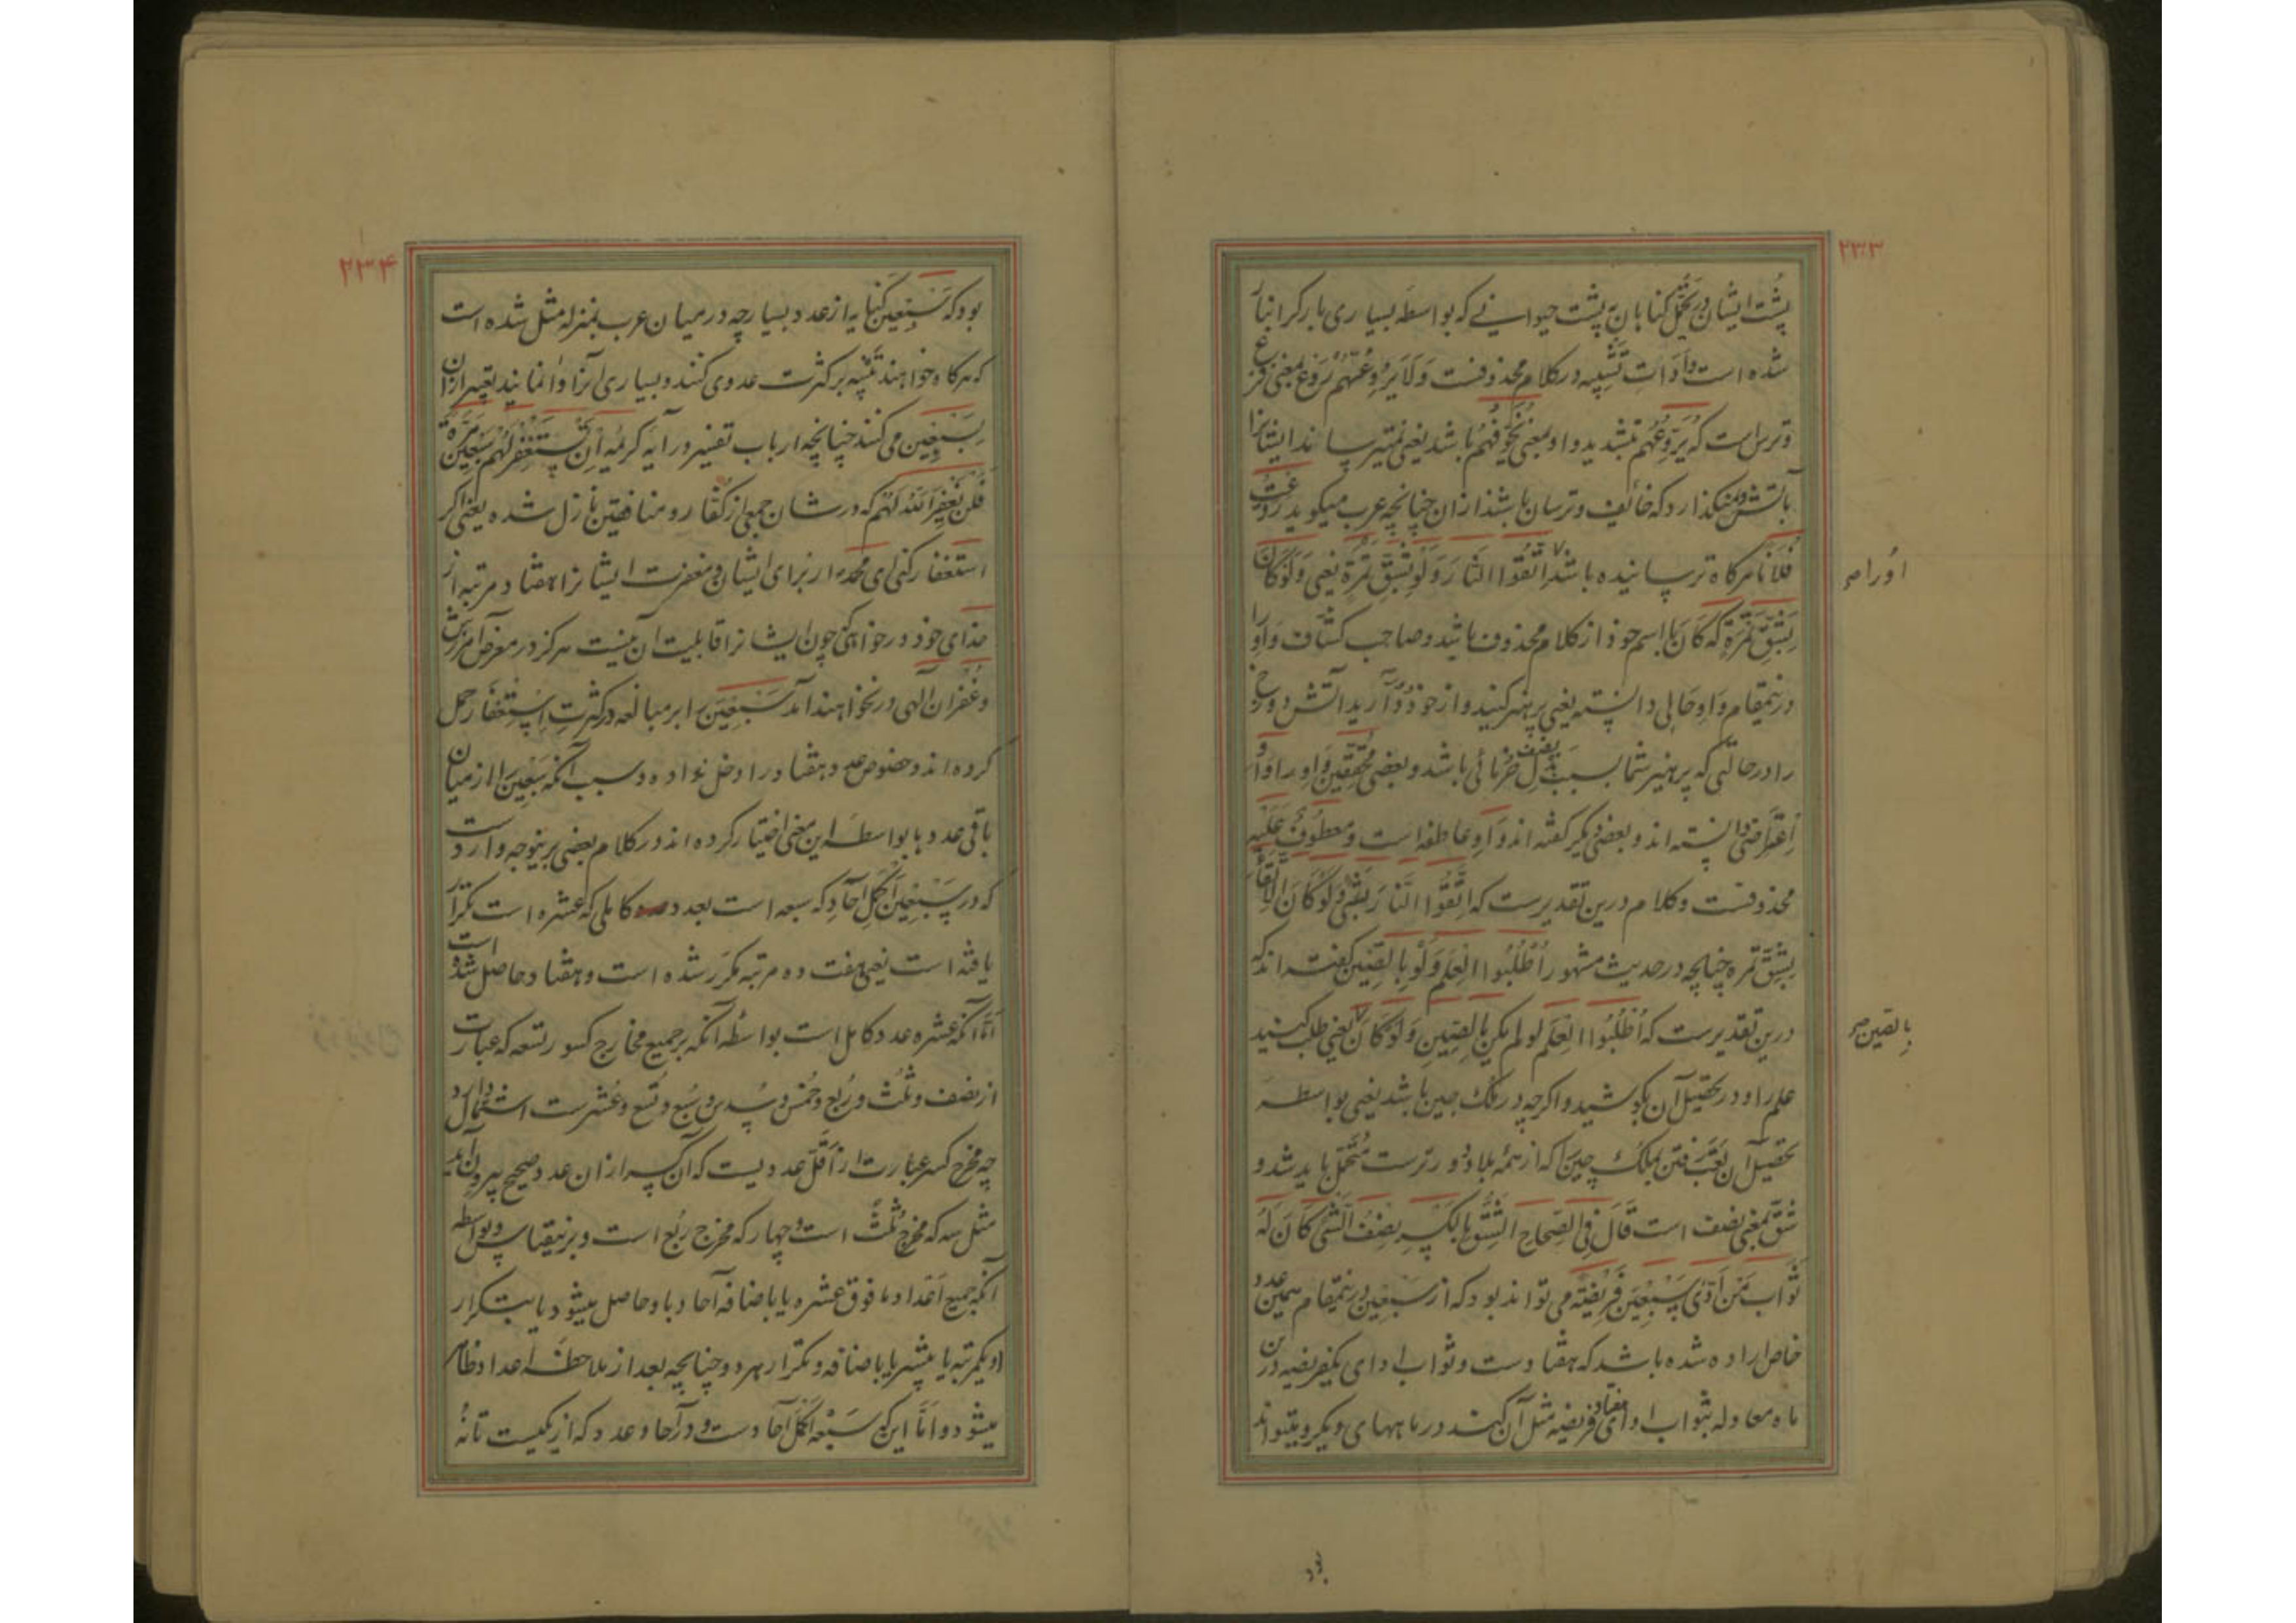 ۲۳۳
پشت ایشان در تحمّل کناهان به پشت حیوانی که بواسطهٔ بسیاری بار کرانبار
شده است و اَدات تشبیه در کلام محذوفست وَلَا یَرُوعُهُم رَوع بمعنی فزع
و ترس است که یُرَوِّعُهم بتشدید واو بمعنی یُخَوِّفُهُم باشد یعنی نمیترساند ایشانرا
بآتش و نمیکذارد که خائف و ترسان باشند از ان چنانچه عرب میکوید رَوَّعتُ
فُلاناً هرکاه ترسانیده باشد اِتَّقُوا النَّارَ وَلَو بِشِقِّ تَمرَةٍ یعنی وَلَو کَانَ
اورا صح
بِشِقِّ تَمرَةٍ که کَانَ با اسم خود از کلام محذوف باشد و صاحب کشّاف واو را
درینمقام واو حالی دانسته یعنی پرهیز کنید و از خود دور دارید آتش دوزخ
را در حالتی که پرهیز شما بسبب بذل نصف خرمائی باشد و بعضی محقّقین واو را واو
اعتراضی دانسته اند و بعضی دیکر کفته اند واو عاطفه است و معطوفٌ عَلَیه
محذوفست و کلام درین تقدیرست که اِتَّقُوا النَّارَ بِشَیٍٔ وَلَو کَانَ الاِتِّقَاءُ
بِشِقِّ تمره چنانچه در حدیث مشهور اُطلُبُوا العِلمَ وَلَو بِالصِّین کفته اند که
درین تقدیرست که اُطلُبُوا العِلم لو لم یکن بِالصِّینِ وَلَو کَانَ یعنی طلب کنید
بِالصّین صح
علم را و در تحصیل آن بکوشید و اکرچه در ملک چین باشد یعنی بواسطهٔ
تحصیل آن تعب رفتن بملک چین را که از همهٔ بلاد دورترست متحمّل باید شد و
شِقّ بمعنی نصف است قَالَ فِی الصِّحاح الشِّقُّ بِالکَسرِ نِصفُ الشَّیٔ کَانَ لَهُ
ثَوَاب مَن اَدّی سَبعِینَ فَرِیضَةً می تواند بود که از سَبعِین درینمقام همین عدد
خاص اراده شده باشد که هفتادست و ثواب ادای یکفریضه درین
ماه معادله بثواب ادای هفتاد فریضه مثل آن کند در ماههای دیکر و میتواند
بود
۲۳۴
بود که سَبعِین کنایه از عدد بسیار چه در میان عرب بمنزله مثل شده است
که هرکاه خواهند تنبیه بر کثرت عددی کنند و بسیاری آنرا وانمایند تعبیر از ان
بسَبعِین می کنند چنانچه ارباب تفسیر در آیهٔ کریمه اِن تَستَغفِر لَهُم سَبعِینَ مَرَّةً
فَلَن یَغفِرَ اللهُ لَهُم که در شان جمعی از کفّار و منافقین نازل شده یعنی اکر
استغفار کنی ای محمّد از برای ایشان و مغفرت ایشانرا هفتاد مرتبه از
خدای خود درخواهی چون ایشانرا قابلیت آن نیست هرکز در معرض آمرزش
و غُفران آلهی در نخواهند آمد سَبعِین را بر مبالغه در کثرتِ اِستِغفَار حمل
کرده اند و خصوص عدد هفتاد را دخل نداده و سبب آنکه سَبعِین را از میان
باقی عددها بواسطهٔ این معنی اختیار کرده اند در کلام بعضی برینوجه واردست
که در سَبعِین اَکمَلِ آحَاد که سبعه است بعدد کاملی که عشره است تکرار
یافته است یعنی هفت ده مرتبه مکرّر شده است و هفتاد حاصل شده است
امّا آنکه عشره عدد کامل است بواسطهٔ آنکه بر جمیع مخارج کسور تسعه که عبارت
از نصف و ثُلث و رُبع و خُمس و سُدس و سُبع و تُسع و عُشرست اشتمال دارد
چه مخرج کسر عبارت از اَقَلّ عددیست که آن کسر از ان عدد صحیح بیرون آید
مثل سه که مخرج ثُلث است و چهار که مخرج رُبع است و برینقیاس و بواسطهٔ
آنکه جمیع اَعداد ما فوق عشره یا باضافهٔ آحاد باو حاصل میشود یا بتکرار
او یکمرتبه یا بیشتر یا باضافه و تکرار هر دو چنانچه بعد از ملاحظهٔ اعداد ظاهر
میشود و اَمّا این که سَبعَه اَکمَل آحادست و در آحاد عدد که از یکیست تا نُه